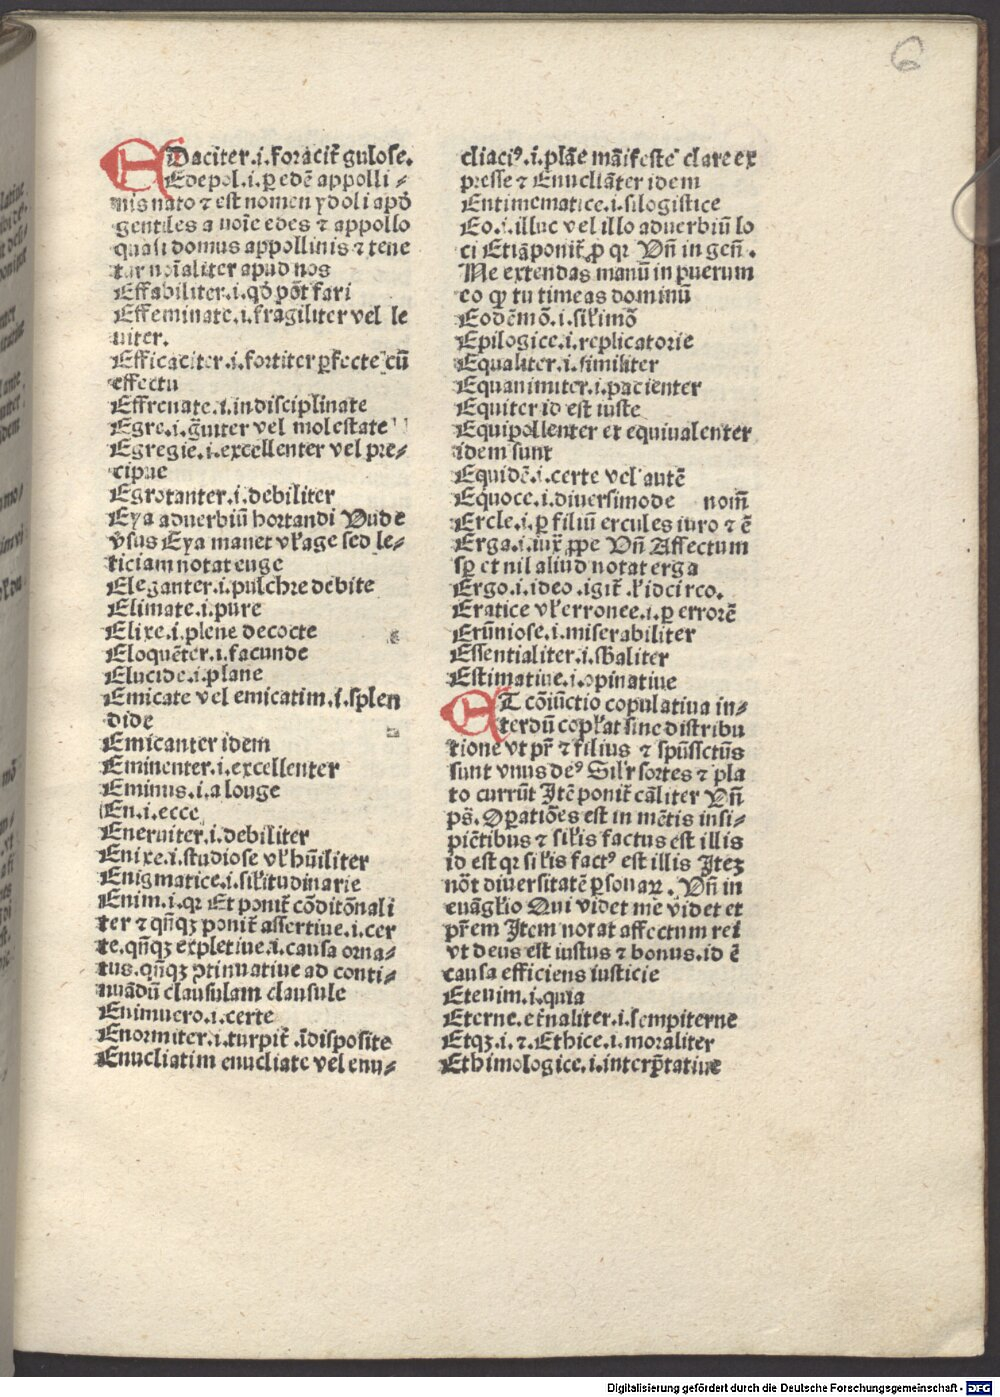 6
EDaciter.i.foracit̃ gulose.
Edepol.i.ꝑ edē appolli⸗
nis nato ⁊ est nomen ydoli apđ
gentiles a noīe edes ⁊ appollo
quasi domus appollinis ⁊ tene
tur noīaliter apud nos
Effabiliter.i.qđ põt fari
Effeminate.i.fragiliter vel le
uiter.
Efficaciter.i.fortiter ꝑfecte cū
effectu
Effrenate.i.indisciplinate
Egre.i.g̃uiter vel molestate
Egregie.i.excellenter vel pre⸗
cipue
Egrotanter.i.debiliter
Eya aduerbiū hortandi Vnde
v̓sus Eya manet vł age sed le⸗
ticiam notat euge
Eleganter.i.pulchre debite
Elimate.i.pure
Elixe.i.plene decocte
Eloquēter.i.facunde
Elucide.i.plane
Emicate vel emicatim.i.splen
dide
Emicanter idem
Eminenter.i.excellenter
Eminus.i.a longe
En.i.ecce
Eneruiter.i.debiliter
Enixe.i.studiose vł hūiliter
Enigmatice.i.siłitudinarie
Enim.i.qr Et ponit̃ cōditōnali
ter ⁊ qñqꝫ ponit̃ assertiue.i.cer
te.qñqꝫ expletiue.i.causa orna⸗
tus.qñqꝫ ꝯtinuatiue ad conti⸗
nuādū clausulam clausule
Enimuero.i.certe
Enormiter.i.turpit̃ .īdisposite
Enucliatim enucliate vel enu⸗
cliaciꝰ.i.plāe māifeste clare ex
presse ⁊ Enucliāter idem
Entimematice.i.silogistice
Eo.i.illuc vel illo aduerbiū lo
ci Etiā ponit̃ ꝓ qr Vñ in geñ.
Ne extendas manū in puerum
eo ꝙ tu timeas dominū
Eodēmō.i.siłimō
Epilogice.i.replicatorie
Equaliter.i.similiter
Equanimiter.i.pacienter
Equiter id est iuste
Equipollenter et equiualenter
idem sunt
Equidē.i.certe vel autē
Equoce.i.diuersimode nom̃
Ercle.i.ꝑ filiū ercules iuro ⁊ ē
Erga.i.iux̃ ꝓpe Vñ Affectum
sꝑ et nil aliud notat erga
Ergo.i.ideo.igit̃.ł idcirco.
Eratice vł erronee.i.ꝑ errorē
Erūniose.i.miserabiliter
Essentialiter.i.sb̄aliter
Estimatiue.i.opinatiue
ET cōiūctio copulatiua in⸗
terdū copłat sine distribu
tione vt pr̃ ⁊ filius ⁊ spūssctūs
sunt vnus deꝰ Sil̓r sortes ⁊ pla
to currūt Itē ponit̃ cāliter Vñ
ps̄. Oꝑatiōes est in mētis insi⸗
piētibus ⁊ siłis factus est illis
id est qr siłis factꝰ est illis Iteꝫ
nōt diuersitatē ꝑsonaꝝ. Vñ in
euāgłio Qui videt me videt et
pr̄em Item notat affectum rei
vt deus est iustus ⁊ bonus.id ē
causa efficiens iusticie
Etenim.i.quia
Eterne.et̃naliter.i.sempiterne
Etqꝫ.i.⁊. Ethice.i.moraliter
Ethimologice.i.interp̄tatiue
Digitalisierung gefördert durch die Deutsche Forschungsgemeinschaft - DFG